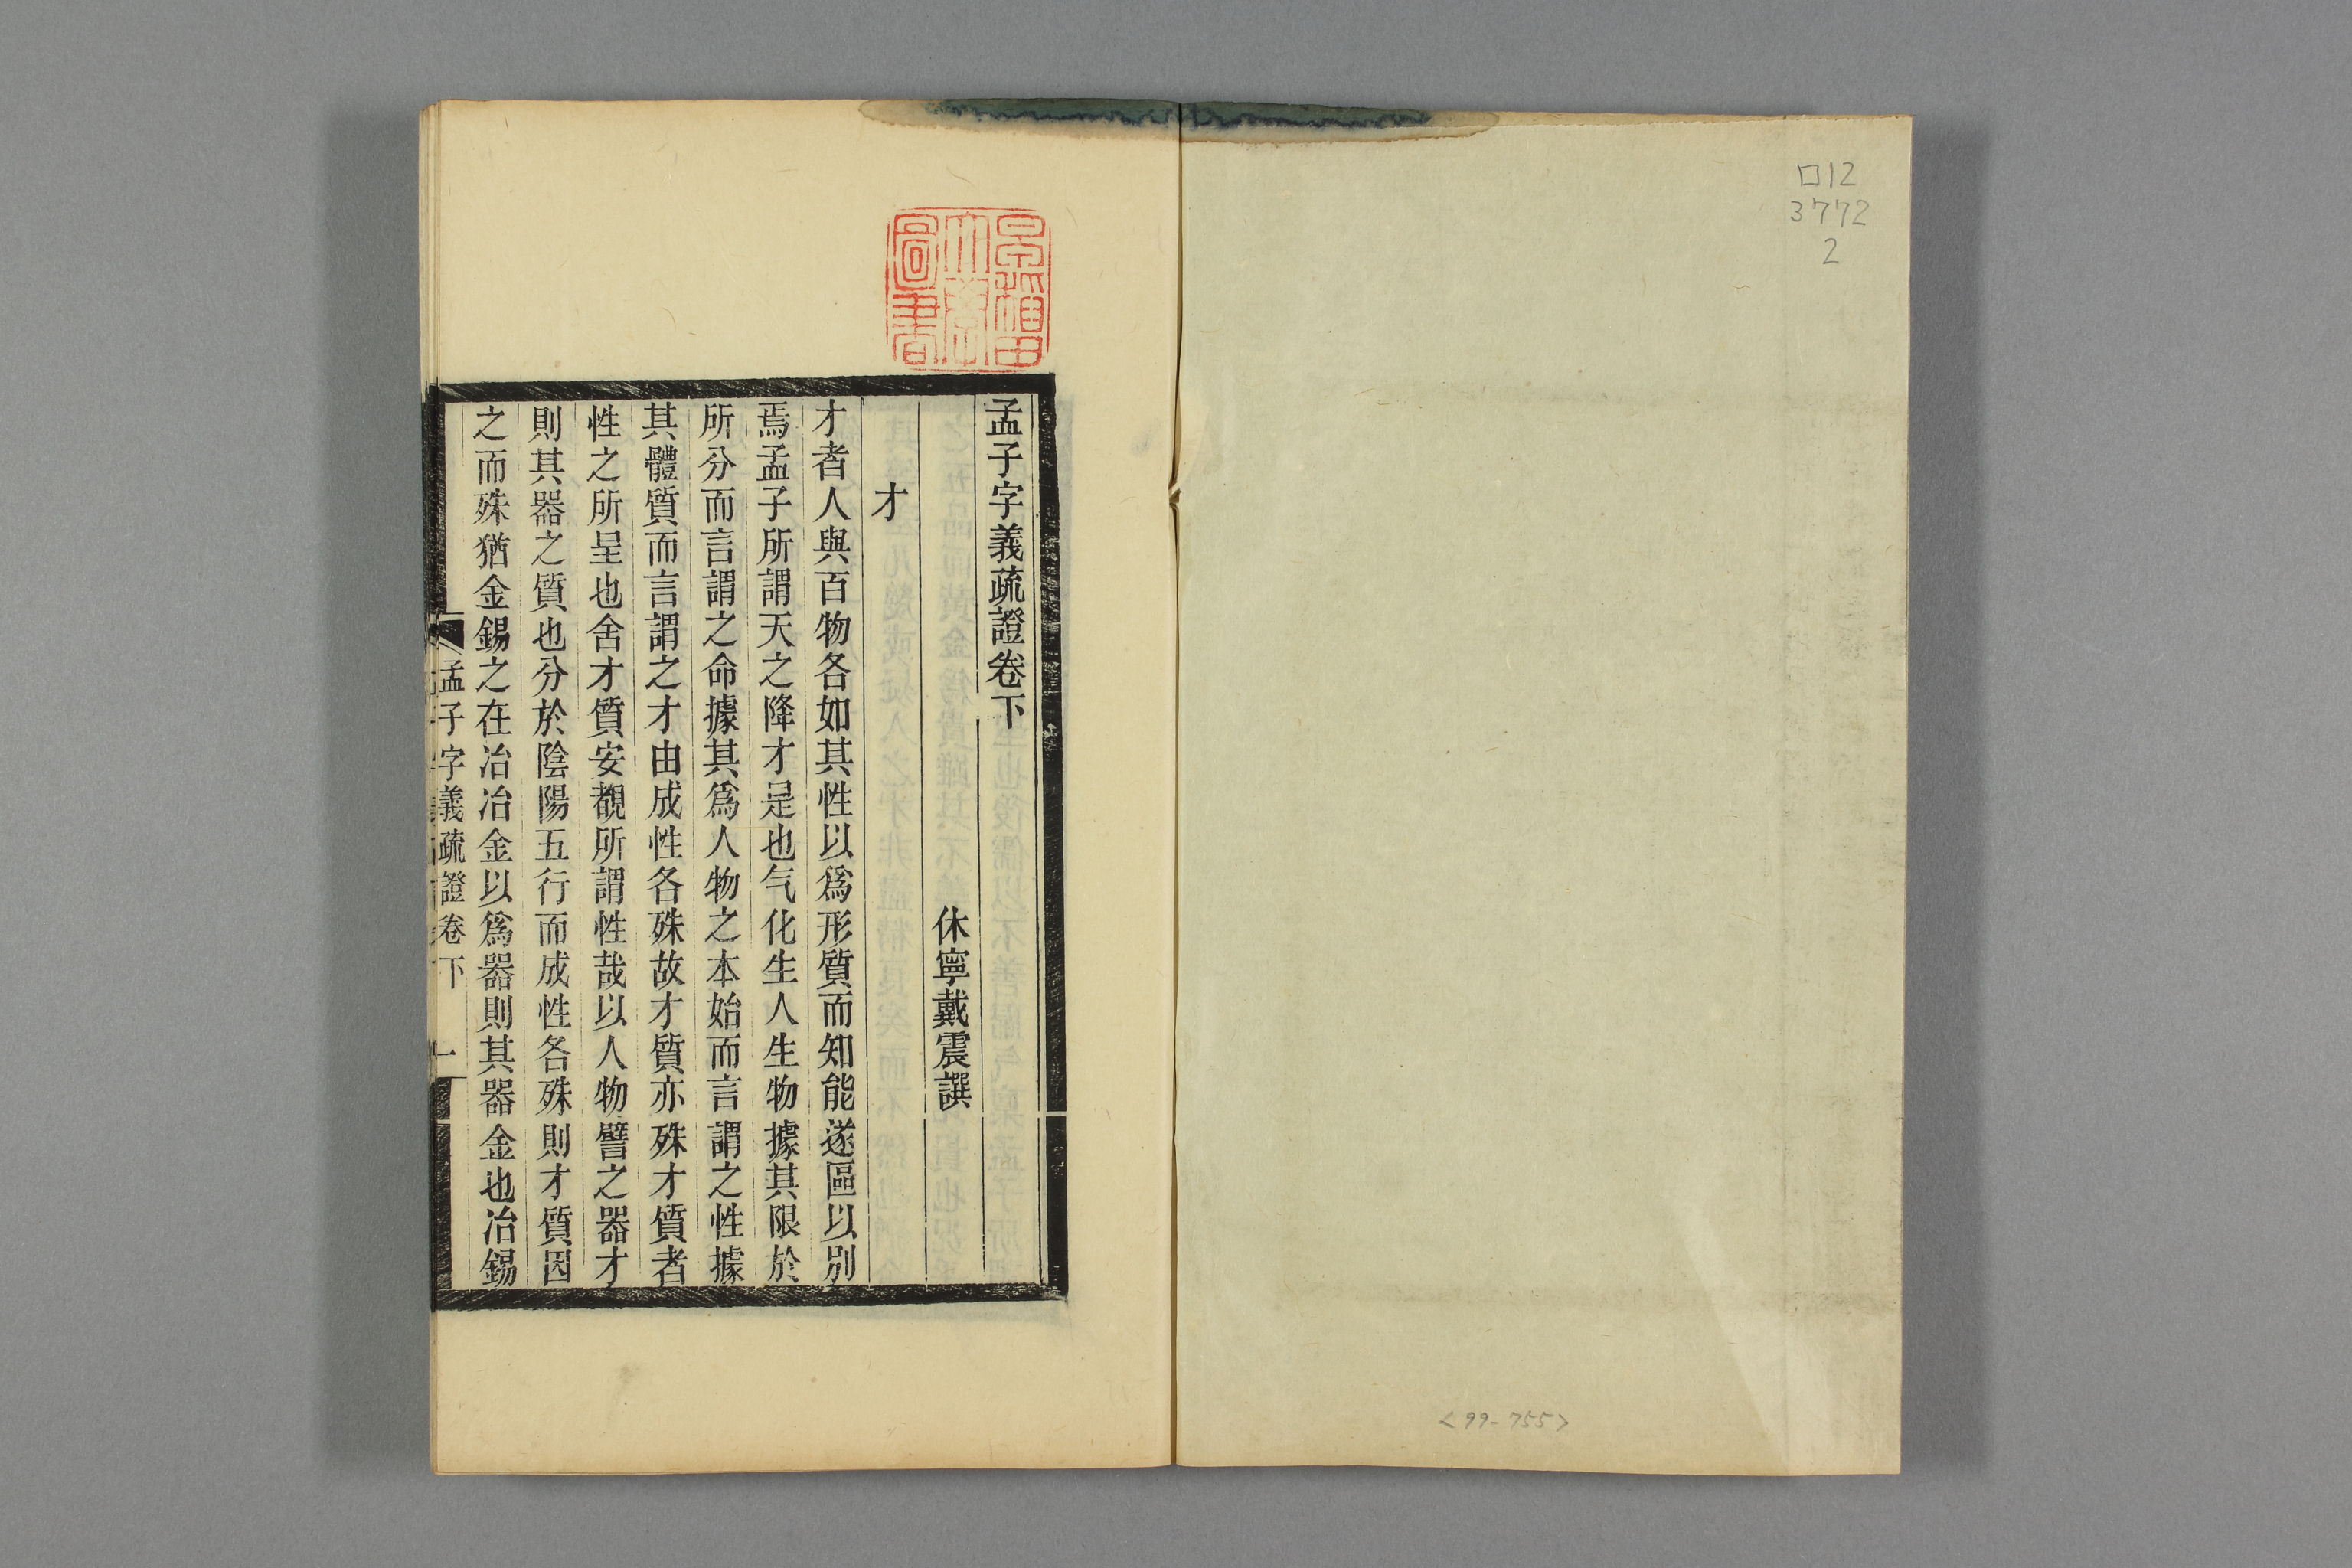 ロ12
3772
2
<99-755>
早稲田
大學
圖書
孟子字義疏證卷下
休寧戴震譔
才
才者人與百物各如其性以爲形質而知能遂區以別
焉孟子所謂天之降才是也气化生人生物據其限於
所分而言謂之命據其爲人物之本始而言謂之性據
其體質而言謂之才由成性各殊故才質亦殊才質者
性之所呈也舍才質安覩所謂性哉以人物譬之器才
則其器之質也分於陰陽五行而成性各殊則才質因
之而殊猶金錫之在冶冶金以爲器則其器金也冶錫
孟子字義疏證卷下
一